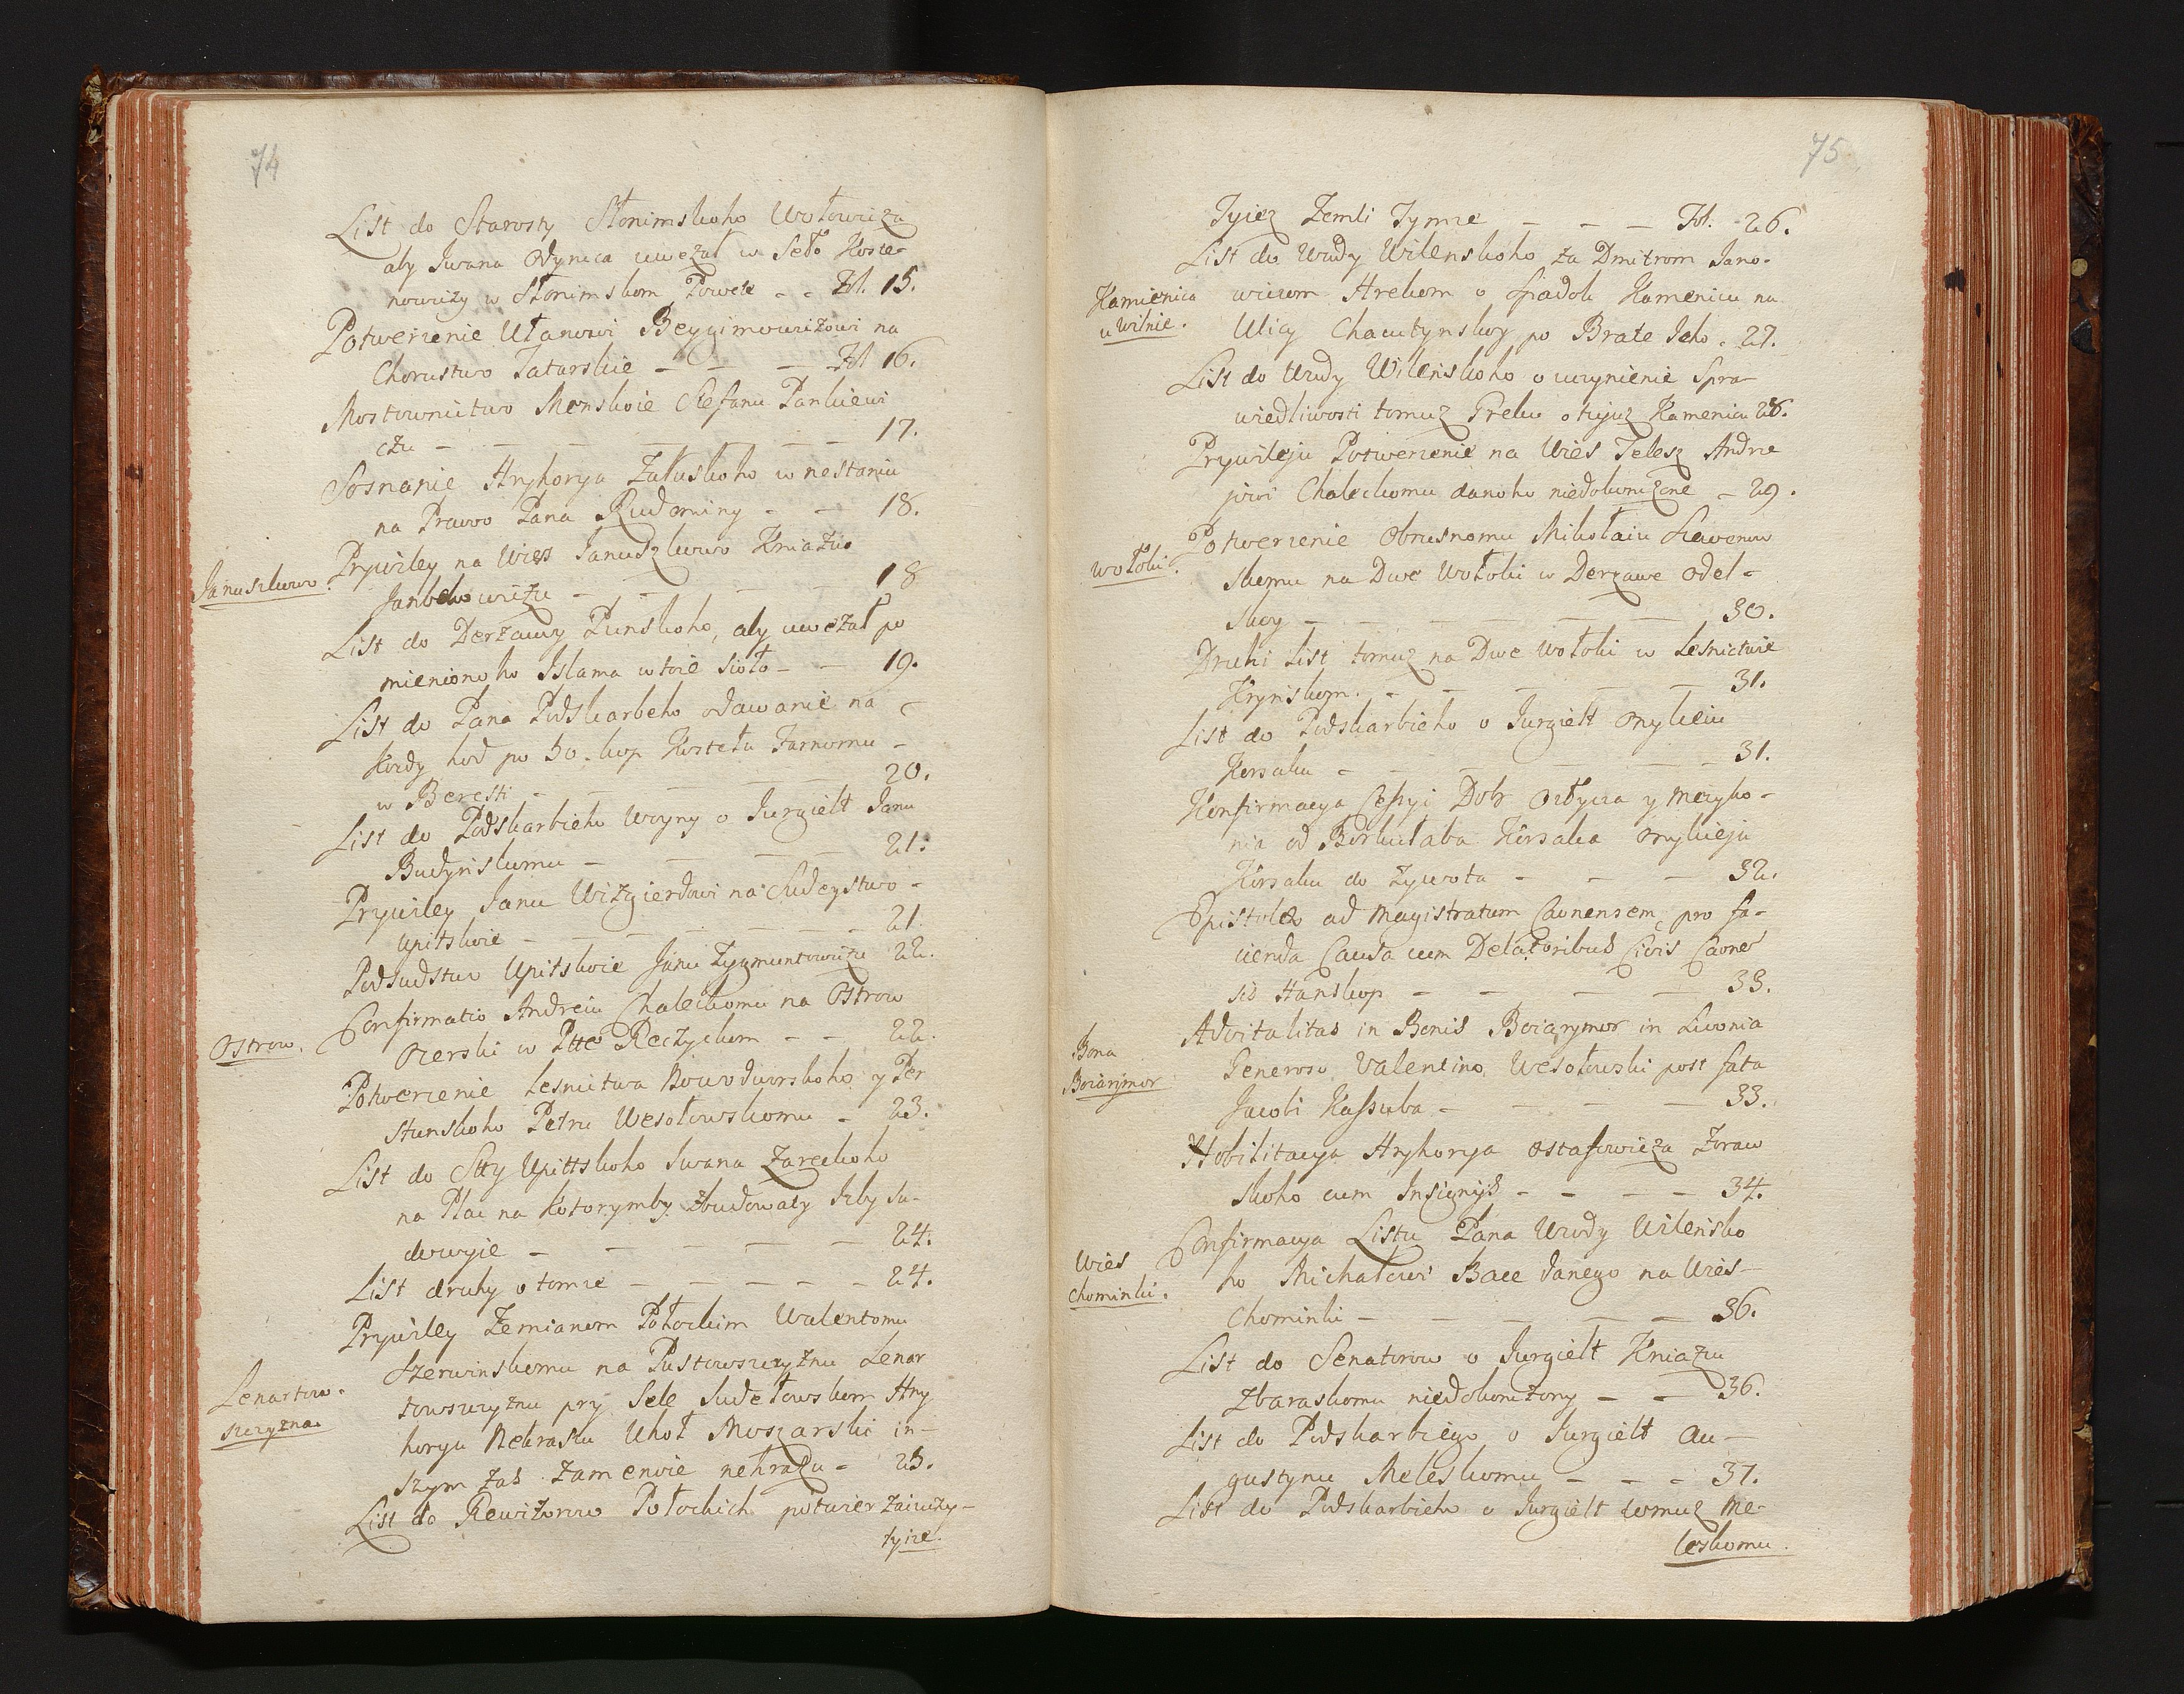 74
List do Starosty Słonimskoho Wołowiza
aby Iwana Odynca uwezał w Seło Koste-
nowizy w Słonimskom Powete - - Fol. 15.
Potwerzenie Ułanowi Beygimowizowi na
Chorustwo Tatarskie - - - Fol 16.
Mostownictwo Menskoie Stefanu Pankiewi
czu - - - - - - 17.
Sosnanie Hryhorya Załuskoho w nestaniu
na Prawo Pana Rudominy - - 18.
Januszkowo.
Prywiley na Wies Januszkowo Kniaziu
Janbekowizu - - - - 18
List do Derzawy Punskoho, aby uwezał po
mienionoho Islama w toie sioło - - 19.
List do Pana Podskarbeho o dawanie na
Kozdy hod po 50. kop Kostełu Farnomu -
w Beresti - - - - - 20.
List do Podskarbieho Woyny o Iurgielt Janu
Budynskomu - - - - 21.
Prywiley Janu Wizgierdowi na Sudeystwo -
Upitskoie - - - - - - 21
Podsudstwo Upitskoie Janu Zygmuntowizu 22.
Ostrow.
Confirmatio Andreiu Chaleckomu na Ostrow
Ozerski w Ptte Reczyckom - - 22.
Potwerzenie Lesnictwa Nowodworskoho y Per
stunskoho Petru Wesołowskomu - 23.
List do Stty Upittskoho Iwana Zareckoho
na Plac na Kotorymby zbudowały Izby su-
dowyie - - - - - 24.
List druhy o tomze - - - - - 24.
Prywiley Zemianom Połockim Walentomu
Lenartow-
szczyzna.
Szerwinskomu na Pustowszczyznu Lenar
towszczyznu pry Sele Sudełowskom Hry
horyu Nekrasku Uhoł Moszarski in-
szym zas Zamenoie nehrazu - 25.
List do Rewizorow Połockich potwierzaiuzy-
tyize.
75
Tyiez Zemli Tymze - - - Fol. 26.
List do Wwdy Wilenskoho za Dmitrom Jano-
Kamienica
w Wilnie.
wiczom Hrekom o Spadok Kamenicu na
Ulicy Chacutynskoy po Brate Jeho. 27.
List do Wwdy Wilenskoho o uczynienie Spra-
wiedliwosti tomuz Greku o tuiuz Kamenicu 28.
Prywileju Potwerzenie na Wies Telesz Andrze
jowi Chaleckomu danoho niedokonczone - 29.
wołoki.
Potwerzenie Obrusnomu Mikołaiu Lewonow
skomu na Dwe Wołoki w Derzawe Odel-
skoy - - - - - - 30.
Druhi List tomuz na Dwe Wołoki w Lesnictwie
Krynskom. - - - - - 31.
List do Podskarbieho o Iurgielt Onykeiu
Korsaku - - - - - - 31.
Konfirmacya Cessyi Dobr Ozłycza y Meryho-
nia od Borkułaba Korsaka Onykieju
Korsaku do Zywota - - - 32.
Epistola ad Magistratum Caunensem, pro fa-
cienda Causa cum Delatoribus Civis Caune
sis Hanskop - - - - 33.
Bona
Boiarymor
Advitalitas in Bonis Boiarymor in Livonia
Generoso Valentino Wesołowski post fata
Jacobi Kassuba - - - - 33.
Nobilitacya Hryhorya Ostafowicza Zoraw
skoho cum Insignijs - - - - 34.
Wies
Chominki.
Confirmacya Listu Pana Wwdy Wilensko
ho Michałowi Bace danego na Wies -
Chominki - - - - - 36.
List do Senatorow o Iurgielt Kniaziu
Zbaraskomu niedokonczony - - 36.
List do Podskarbiego o Iurgielt Au-
gustynu Meleskomu - - - 37.
List do Podskarbieho o Iurgielt tomuz Me-
leskomu.